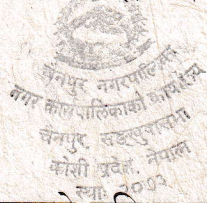 चैनपुर नगरपालिका
नगर कार्यपालिकाको कार्यालय
चैनपुर, सङ्खुवासभा
कोशी प्रदेश, नेपाल
स्था: २०७२